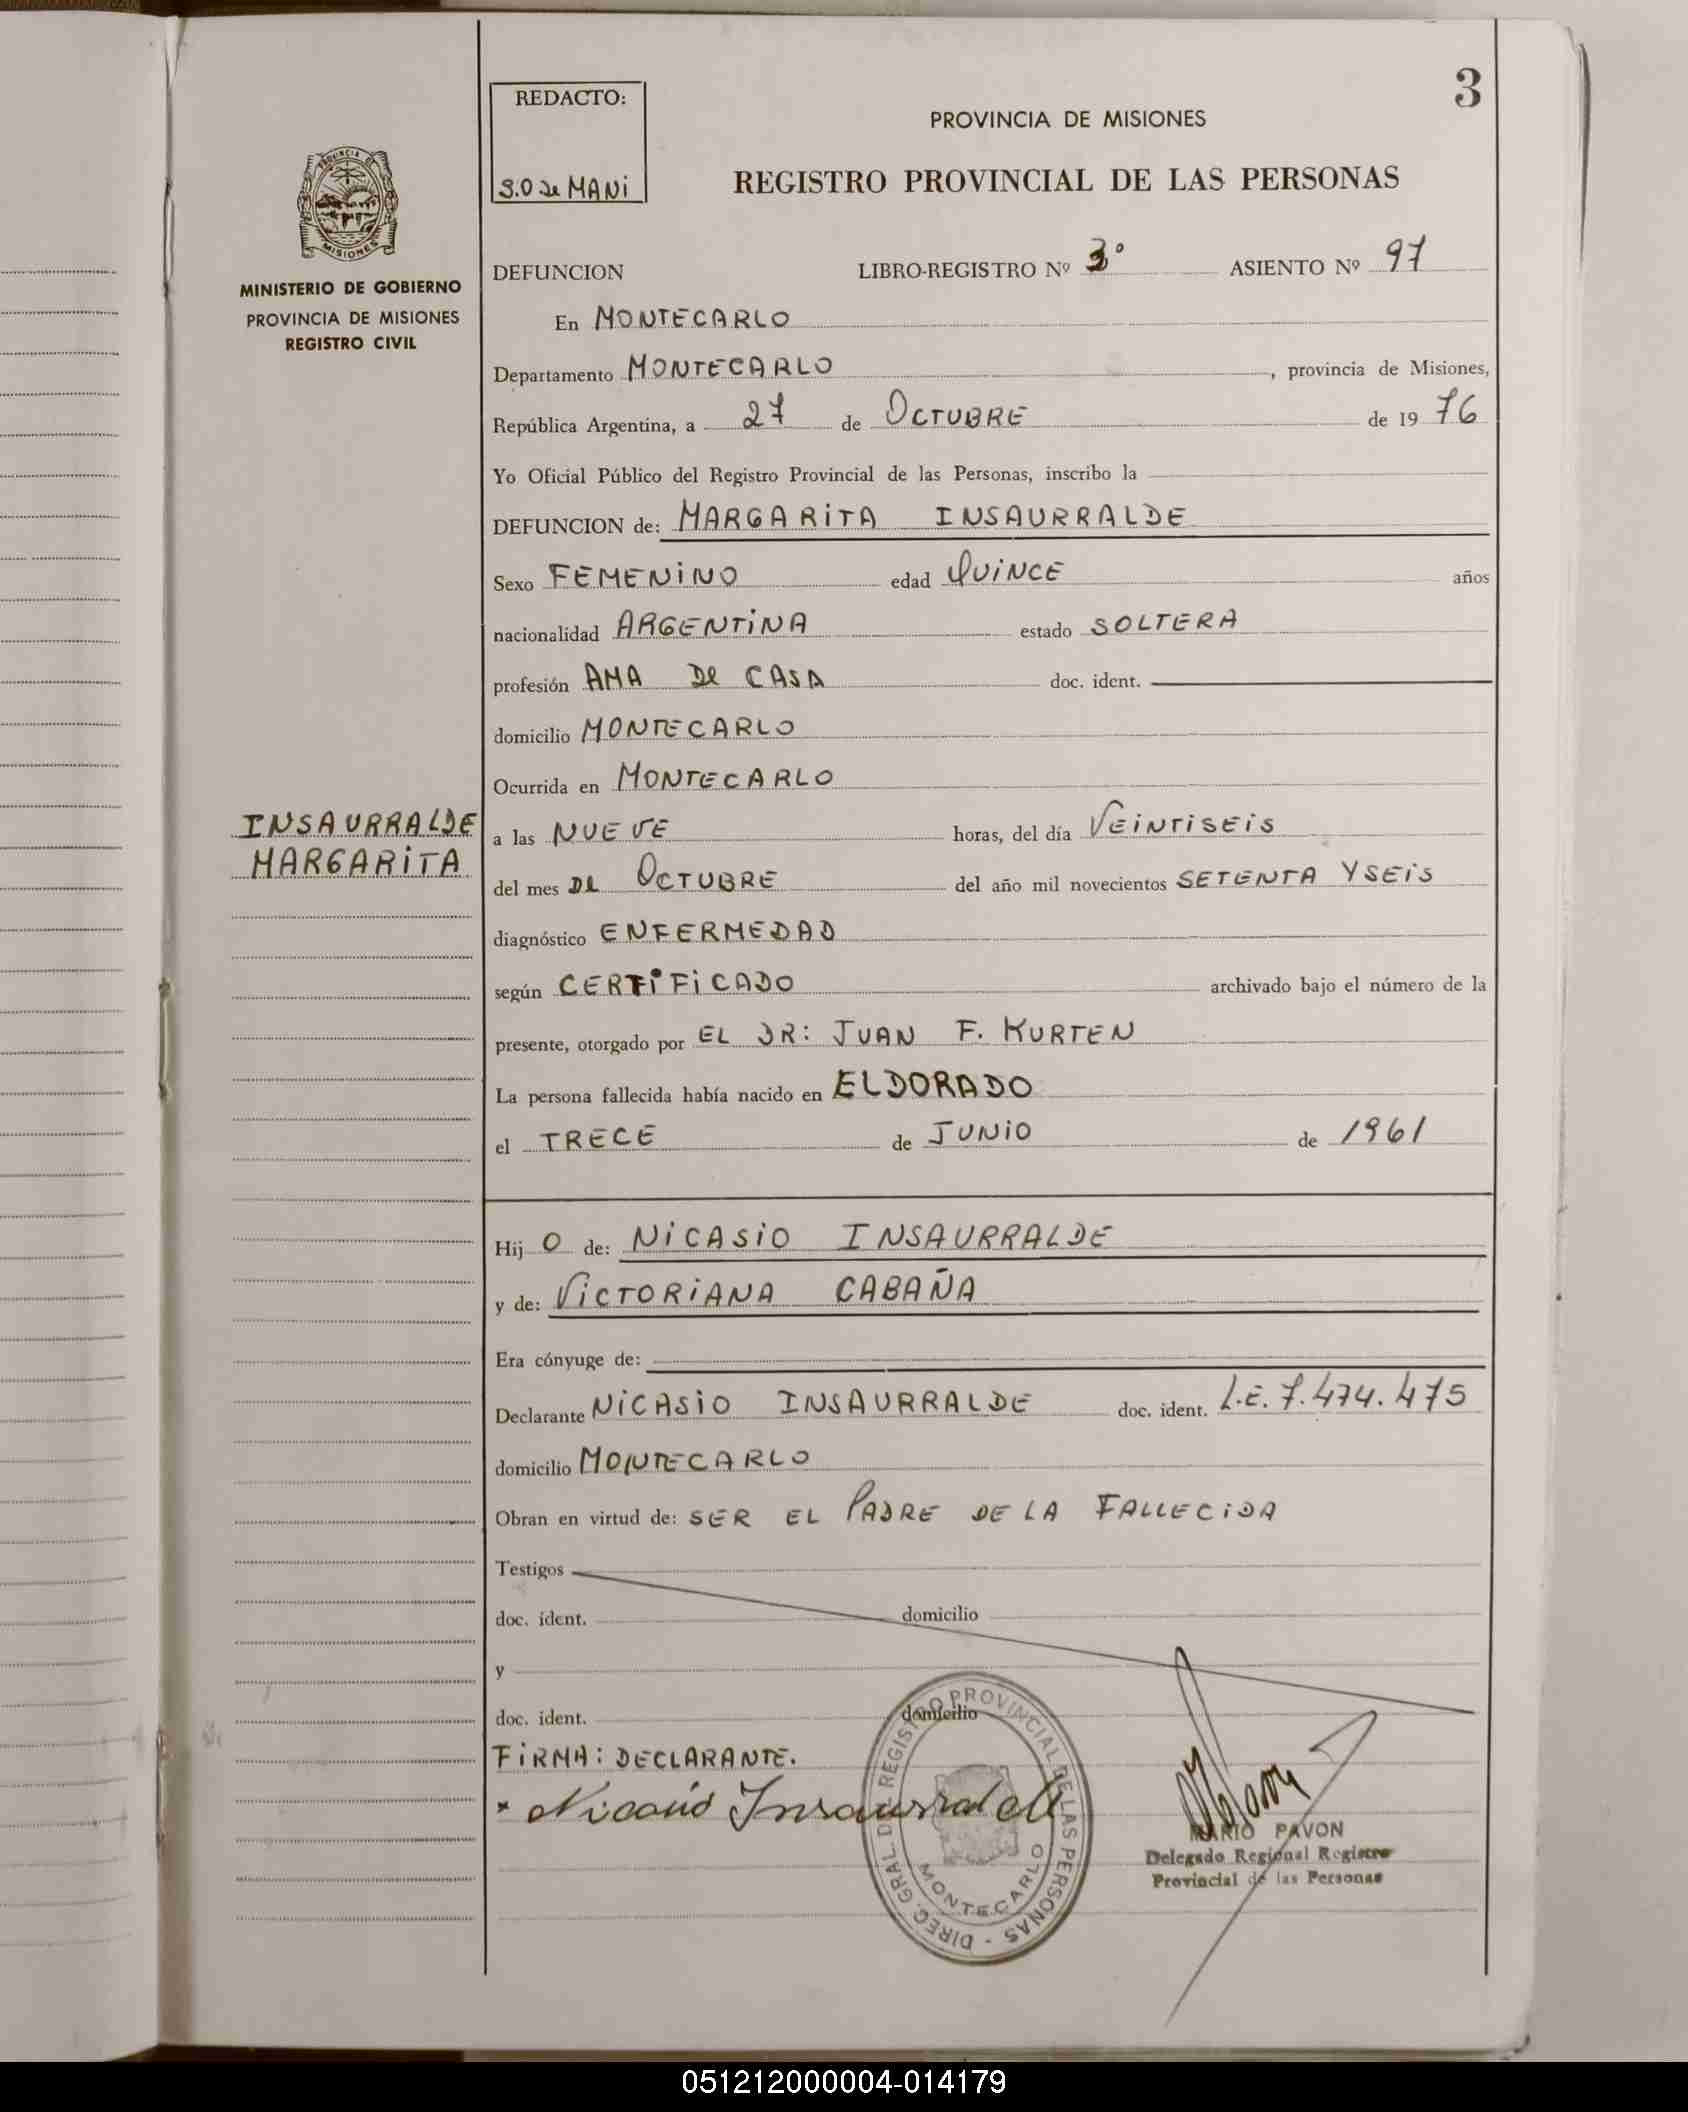 3
REDACTO:
S.O de MANi
PROVINCIA DE MISIONES
REGISTRO PROVINCIAL DE LAS PERSONAS
PROVINCIA DE
MISIONES
MINISTERIO DE GOBIERNO
PROVINCIA DE MISIONES
REGISTRO CIVIL
DEFUNCION LIBRO-REGISTRO Nº 3º ASIENTO Nº 97
En MONTECARLO
Departamento MONTECARLO, provincia de Misiones,
República Argentina, a 27 de OCTUBRE de 19 76
Yo Oficial Público del Registro Provincial de las Personas, inscribo la
DEFUNCION de: MARGARiTA INSAURRALDE
Sexo FEMENiNO edad QUiNCE años
nacionalidad ARGENTiNA estado SOLTERA
profesión AMA De CASA doc. ident.
domicilio MONTECARLO
Ocurrida en MONTECARLO
INSAURRALDE
MARGARiTA
a las NUEVE horas, del día VEiNTiSEiS
del mes DE OCTUBRE del año mil novecientos SETENTA YSEiS
diagnóstico ENFERMEDAD
según CERTiFiCADO archivado bajo el número de la
presente, otorgado por EL DR: JUAN F. KURTEN
La persona fallecida había nacido en ELDORADO
el TRECE de JUNiO de 1961
Hij O de: NiCASiO INSAURRALDE
y de: ViCTORiANA CABAÑA
Era cónyuge de:
Declarante NiCASiO INSAURRALDE doc. ident. L.E. 7.474.475
domicilio MONTECARLO
Obran en virtud de: SER EL PADRE DE LA FALLECiDA
Testigos
doc. ident. domicilio
y
doc. ident. domicilio
FiRMA: DECLARANTE.
Nicasio Insaurralde
DIREC. GRAL DEL REGISTRO PROVINCIAL DE LAS PERSONAS -
MONTECARLO
MARIO PAVON
Delegado Regional Registro
Provincial de las Personas
051212000004-014179